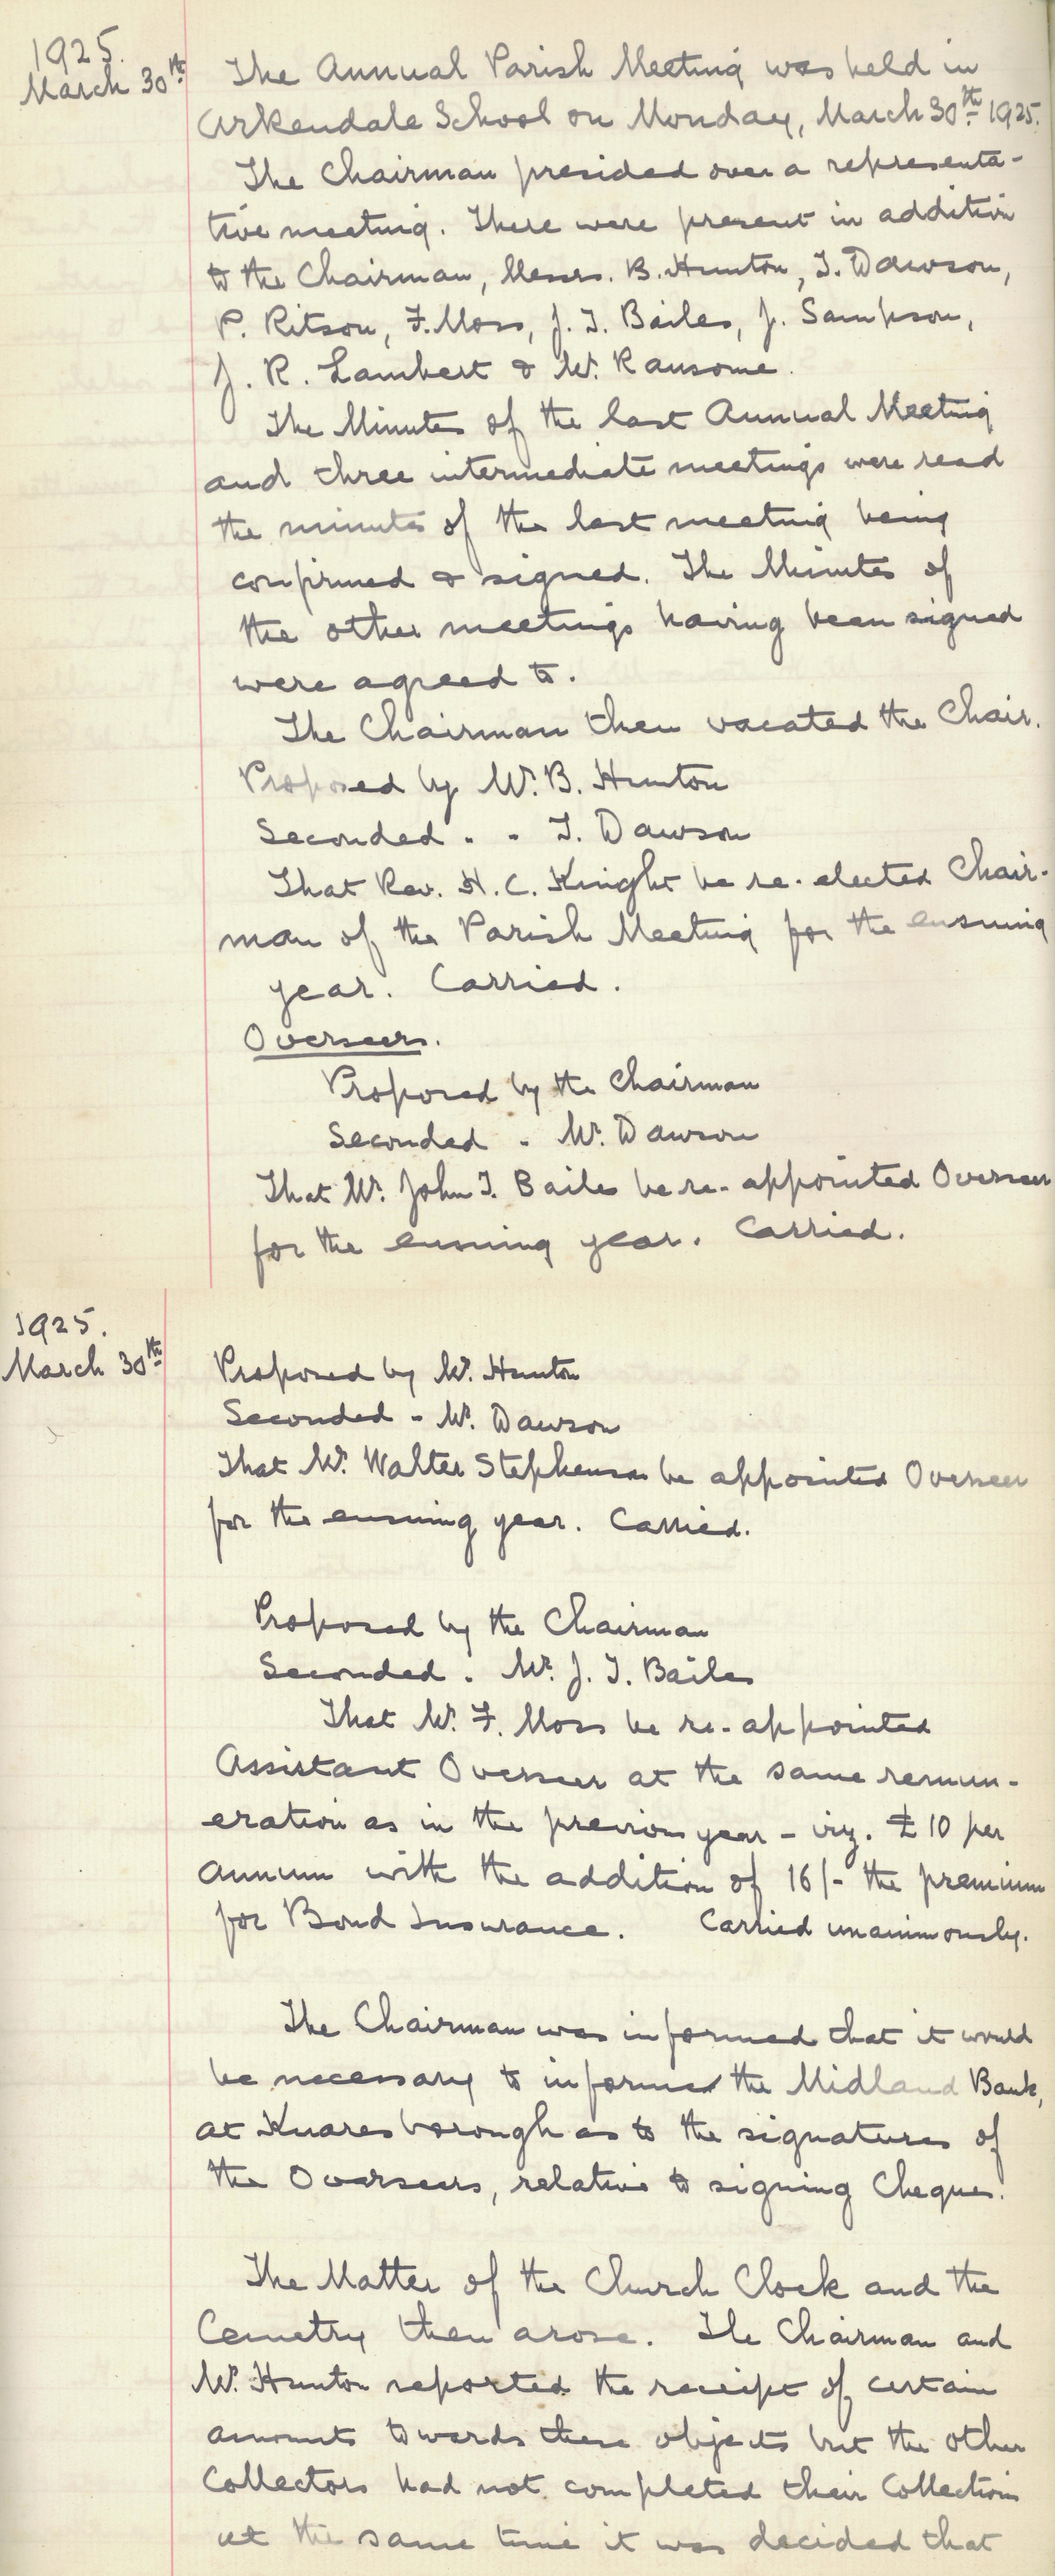 1925.
March 30th
The Annual Parish Meeting was held in
Arkendale School on Monday, March 30th 1925.
The Chairman presided over a representa-
tive meeting. There were present in addition
to the Chairman, Messrs. B. Hunton, T. Dawson,
P. Ritson, F. Moss, J. T. Bailes, J. Sampson,
J. R. Lambert & W. Ransome.
The Minutes of the last Annual Meeting
and three intermediate meetings were read
the minutes of the last meeting being
confirmed & signed. The Minutes of
the other meetings having been signed
were agreed to.
The Chairman then vacated the Chair.
Proposed by Mr. B. Hunton
Seconded . . T. Dawson
That Rev. H. C. Knight be re-elected Chair-
man of the Parish Meeting for the ensuing
year. Carried.
Overseers.
Proposed by the Chairman
Seconded . Mr. Dawson
That Mr. John T. Bailes be re-appointed Overseer
for the ensuing year. Carried.
1925.
March 30th
Proposed by Mr. Hunton
Seconded - Mr. Dawson
That Mr. Walter Stephenson be appointed Overseer
for the ensuing year. Carried.
Proposed by the Chairman
Seconded . Mr. J. T. Bailes
That Mr. F. Moss be re-appointed
Assistant Overseer at the same remun-
eration as in the previous year - viz. £10 per
annum with the addition of 16/- the premium
for Bond Insurance. Carried unanimously.
The Chairman was informed that it would
be necessary to informed the Midland Bank,
at Knaresborough as to the signatures of
the Overseers, relative to signing Cheques.
The Matter of the Church Clock and the
Cemetry then arose. The Chairman and
Mr. Hunton reported the receipt of certain
amounts towards these objects but the other
Collectors had not completed their Collections
at the same time it was decided that